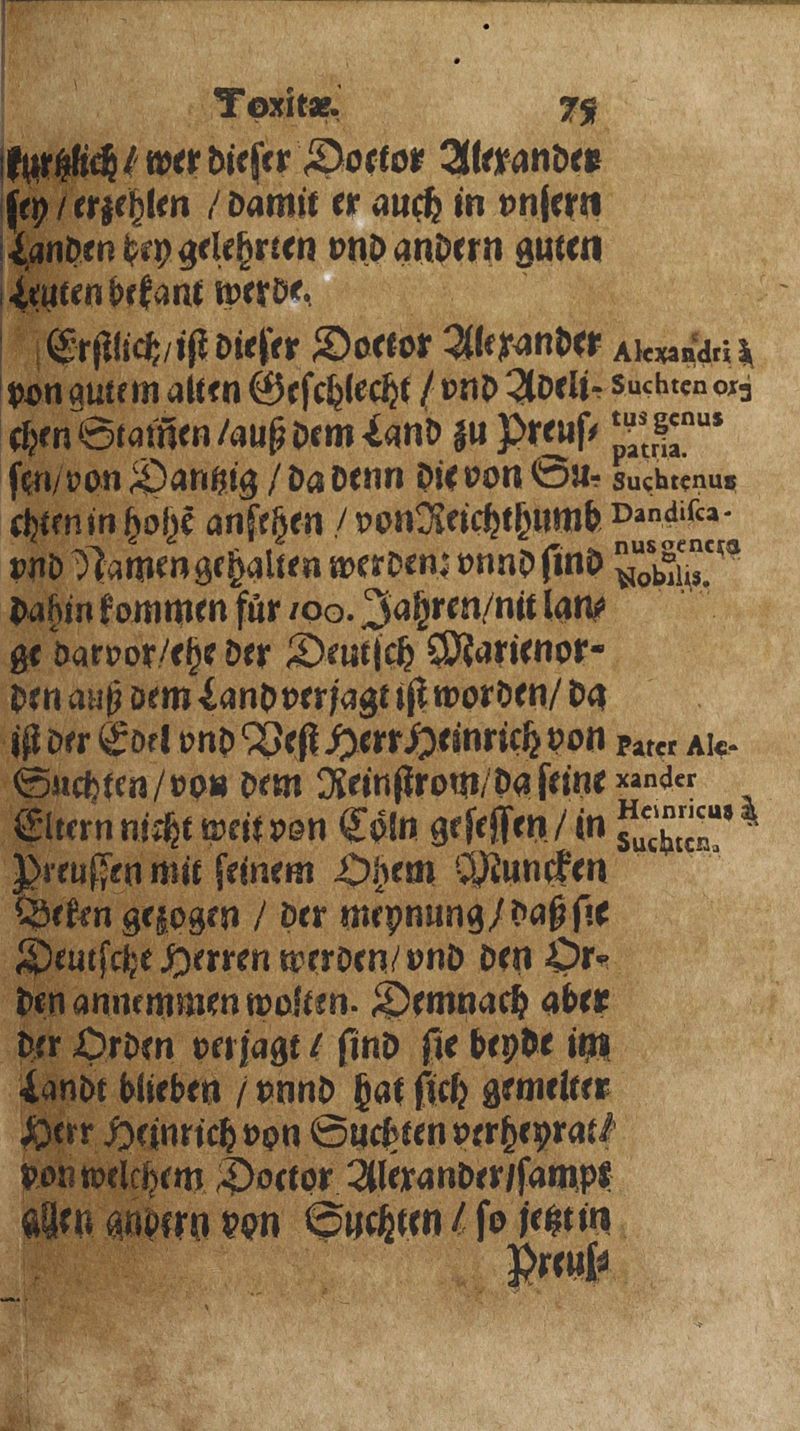 Toxitæ. 75
kürtzlich / wer dieser Doctor Alexander
sey / erzehlen / damit er auch in vnsern
Landen bey gelehrten vnd andern guten
Leuten bekant werde.
Erstlich / ist dieser Doctor Alexander
von gutem alten Geschlecht / vnd Adeli-
chen Stam̃en / auß dem Land zu Preus-
sen / von Dantzig / da denn die von Su-
chten in hohē ansehen / von Reichthumb
vnd Namen gehalten werden: vnnd sind
dahin kommen für 100. Jahren / nit lan-
ge darvor / ehe der Deutsch Marienor-
den auß dem Land verjagt ist worden / da
ist der Edel vnd Vest Herr Heinrich von
Suchten / von dem Reinstrom / da seine
Eltern nicht weit von Cöln gesessen / in
Preussen mit seinem Ohem Muncken
Beken gezogen / der meynung / daß sie
Deutsche Herren werden / vnd den Or-
den annemmen wolten. Demnach aber
der Orden verjagt / sind sie beyde im
Landt blieben / vnnd hat sich gemelter
Herr Heinrich von Suchten verheyrat /
von welchem Doctor Alexander / sampt
allen andern von Suchten / so jetzt in
Preus-
Alexandri à
Suchten or
tus genus
patria.
Suchtenus
Dandisca-
nus genere
Nobilis.
Pater Ale-
xander
Heinricus à
Suchten.